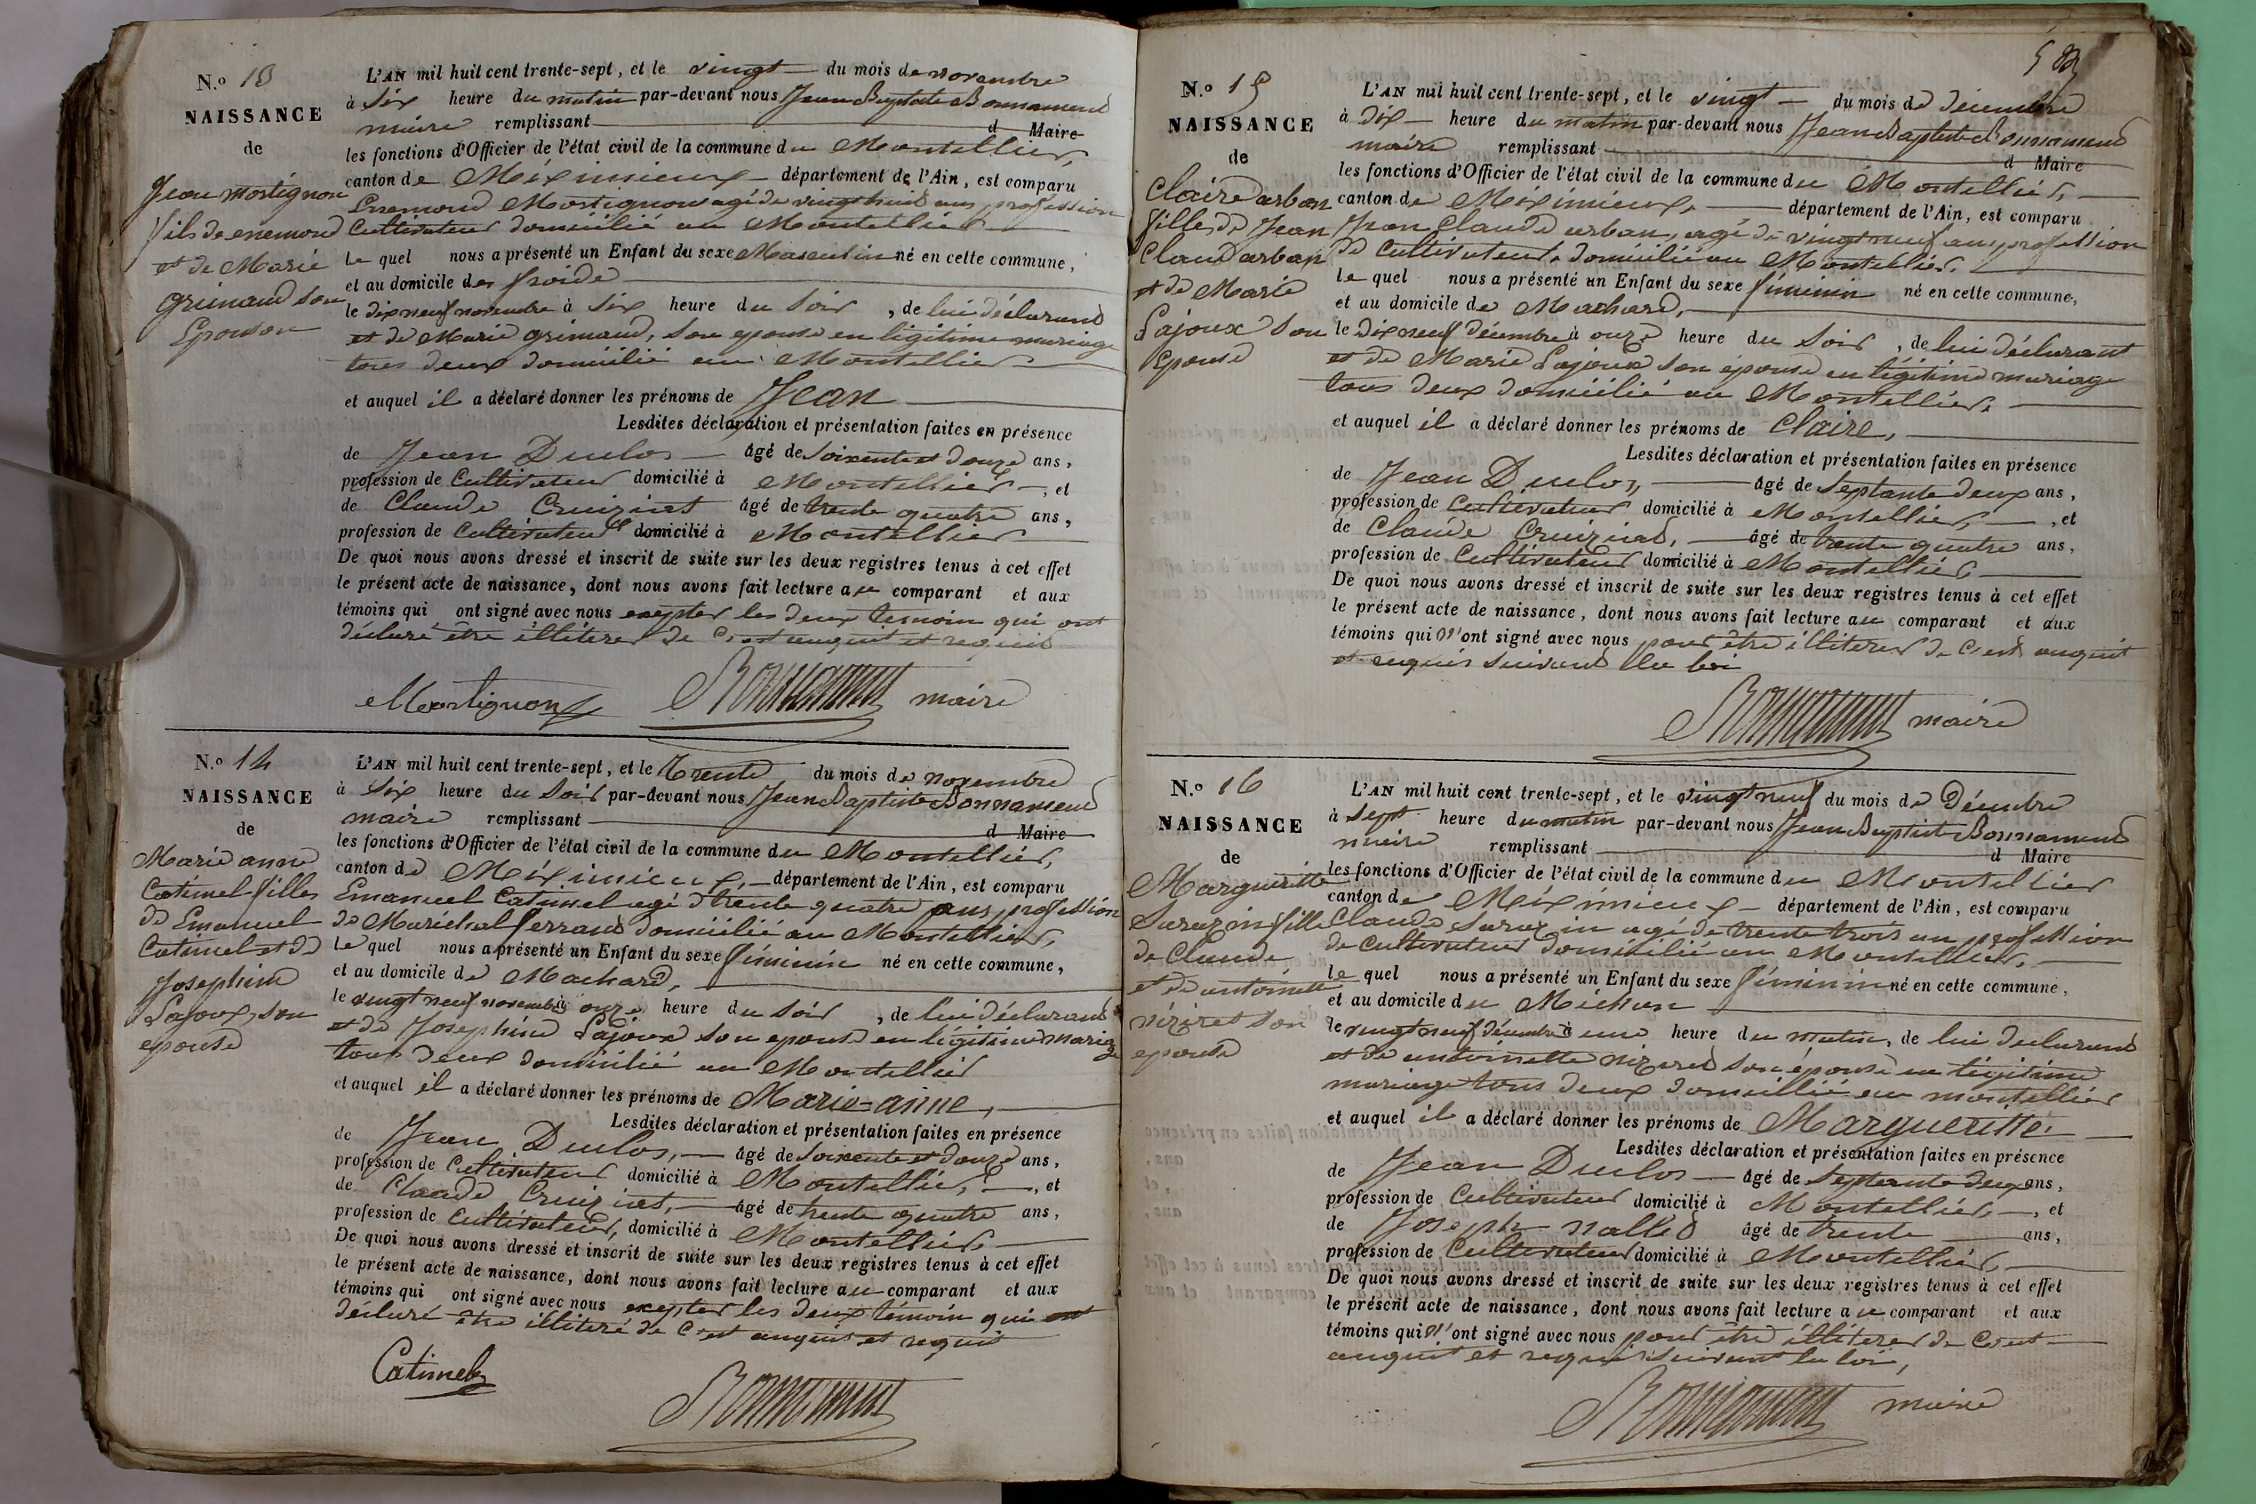 N.º 13
NAISSANCE
de
Jean mortignon
fils de enemond
et de Marie
grimaud son
Epouse
L'AN mil huit cent trente-sept, et le vingt du mois de novembre
à six heure du matin par-devant nous Jean Baptiste Bonnamend
maire remplissant d Maire
les fonctions d'Officier de l'état civil de la commune du Montellier,
canton de Méximieux département de l'Ain, est comparu
Enemond Mortignon agé de vingt huit ans profession
Cultivateur domicilié au Montellier
le quel nous a présenté un Enfant du sexe Masculin né en cette commune,
et au domicile des froide
le dix neuf novembre à six heure du soir, de lui déclarant
et de Marie grimaud, son epouse en légitime mariage
tous deux domicilié au Montellier
et auquel il a déclaré donner les prénoms de Jean
Lesdites déclaration et présentation faites en présence
de Jean Duclos âgé de soixente et douze ans,
profession de Cultivateur domicilié à Montellier, et
de Claude Cruiziat âgé de trente quatre ans,
profession de Cultivateur domicilié à Montellier
De quoi nous avons dressé et inscrit de suite sur les deux registres tenus à cet effet
le présent acte de naissance, dont nous avons fait lecture au comparant et aux
témoins qui ont signé avec nous exepter les deux temoin qui ont
déclaré être illiterer de c'est anquit et requis
Mortignon Bonnamend maire
N.º 14
NAISSANCE
de
Marie anne
Catimel filles
de Emanuel
Catimel et de
Josephine
Lajoux, son
epouse
L'AN mil huit cent trente-sept, et le trente du mois de novembre
à six heure du soir par-devant nous Jean Baptiste Bonnamend
maire remplissant d Maire
les fonctions d'Officier de l'état civil de la commune du Montellier,
canton de Méximieux, département de l'Ain, est comparu
Emanuel Catimel agé de trente quatre ans, profession
de Maréchal ferrand domicilié au Montellier,
le quel nous a présenté un Enfant du sexe féminin né en cette commune,
et au domicile de Machard,
le vingt neuf novembre à onze heure du soir, de lui déclarand
et de Josephine Lajoux son epouse en légitime mariage
tous deux domicilié au Montellier
et auquel il a déclaré donner les prénoms de Marie=anne,
Lesdites déclaration et présentation faites en présence
de Jean Duclos, âgé de soixente et douze ans,
profession de Cultivateur domicilié à Montellier, et
de Claude Cruiziat, âgé de trente quatre ans,
profession de Cultivateur, domicilié à Montellier,
De quoi nous avons dressé et inscrit de suite sur les deux registres tenus à cet effet
le présent acte de naissance, dont nous avons fait lecture au comparant et aux
témoins qui ont signé avec nous exepter les deux témoin qui ont
déclaré etre illiteré de c'est anquis et requis
Catimel Bonnamend
N.º 15
NAISSANCE
de
Claire arban
filles de Jean
Claud arban
et de Marie
Lajoux son
epouse
L'AN mil huit cent trente-sept, et le vingt du mois de décembre
à dix heure du matin par-devant nous Jean Baptiste Bonnamend
maire remplissant d Maire
les fonctions d'Officier de l'état civil de la commune du Montellier,
canton de Méximieux, département de l'Ain, est comparu
Jean Claude arban, agé de vingt neuf ans, profession
de Cultivateur, domicilié au Montellier,
le quel nous a présenté un Enfant du sexe féminin né en cette commune,
et au domicile de Machard,
le dix neuf décembre à onze heure du soir, de lui déclarant
et de Marie Lajoux son épouse en légitime mariage
tous deux domicilié au Montellier,
et auquel il a déclaré donner les prénoms de Claire,
Lesdites déclaration et présentation faites en présence
de Jean Duclos, âgé de septante deux ans,
profession de Cultivateur domicilié à Montellier, et
de Claude Cruiziat, âgé de trente quatre ans,
profession de Cultivateur domicilié à Montellier,
De quoi nous avons dressé et inscrit de suite sur les deux registres tenus à cet effet
le présent acte de naissance, dont nous avons fait lecture au comparant et aux
témoins qui n'ont signé avec nous pour être illiterer de c'est anquit
et requis suivant la loi
Bonnamend maire
N.º 16
NAISSANCE
de
Margueritte
Sarazin fille
de Claude
et de antoinette
nizeret son
epouse
L'AN mil huit cent trente-sept, et le vingt neuf du mois de Décembre
à sept heure du matin par-devant nous Jean Baptiste Bonnamend
maire remplissant d Maire
les fonctions d'Officier de l'état civil de la commune du Montellier
canton de Méximieux département de l'Ain, est comparu
Claude Sarazin agé de trente trois an profession
de Cultivateur domicilié au Montellier,
le quel nous a présenté un Enfant du sexe féminin né en cette commune,
et au domicile du Michon
le vingt neuf décembre à une heure du matin, de lui declarand
et de antoinette nizeret son épouse en légitime
mariage tous deux domicilié au montellier
et auquel il a déclaré donner les prénoms de Margueritte,
Lesdites déclaration et présentation faites en présence
de Jean Duclos âgé de septante deux ans,
profession de Cultivateur domicilié à Montellier, et
de Joseph nallet âgé de trente ans,
profession de Cultivateur domicilié à Montellier,
De quoi nous avons dressé et inscrit de suite sur les deux registres tenus à cet effet
le présent acte de naissance, dont nous avons fait lecture au comparant et aux
témoins qui n'ont signé avec nous pour être illiterer de c'est
anquit et requi suivant la loi,
Bonnamend maire